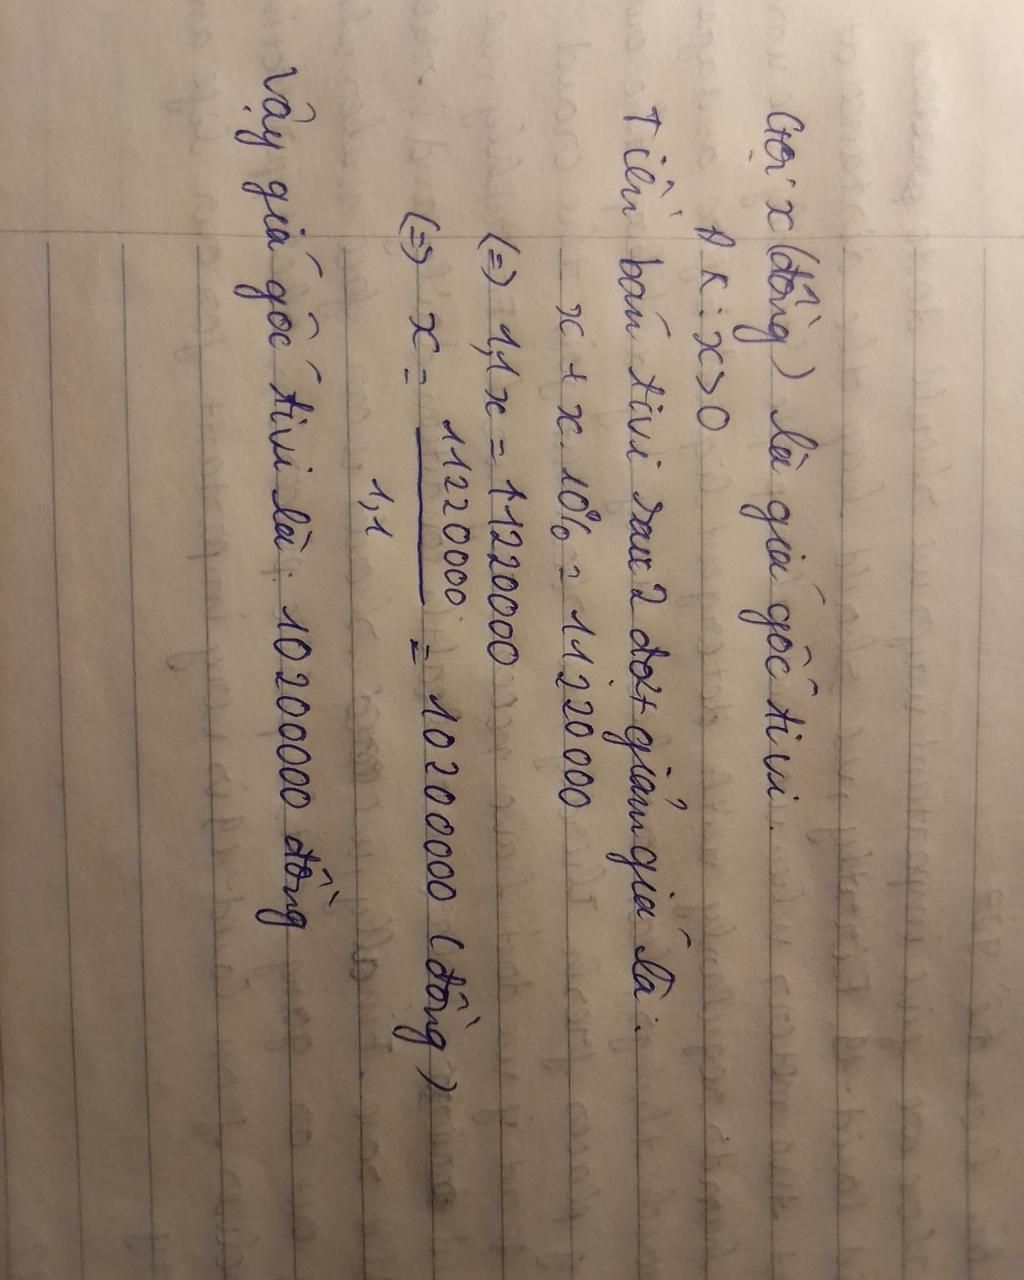 Gọi x (đồng) là giá gốc tivi.
ĐK: x > 0
Tiền bán tivi sau 2 đợt giảm giá là:
x + x. 10% = 11220000
(=) 1,1x = 11220000
(=) x = 11220000 / 1,1 = 10200000 (đồng)
Vậy giá gốc tivi là: 10200000 đồng